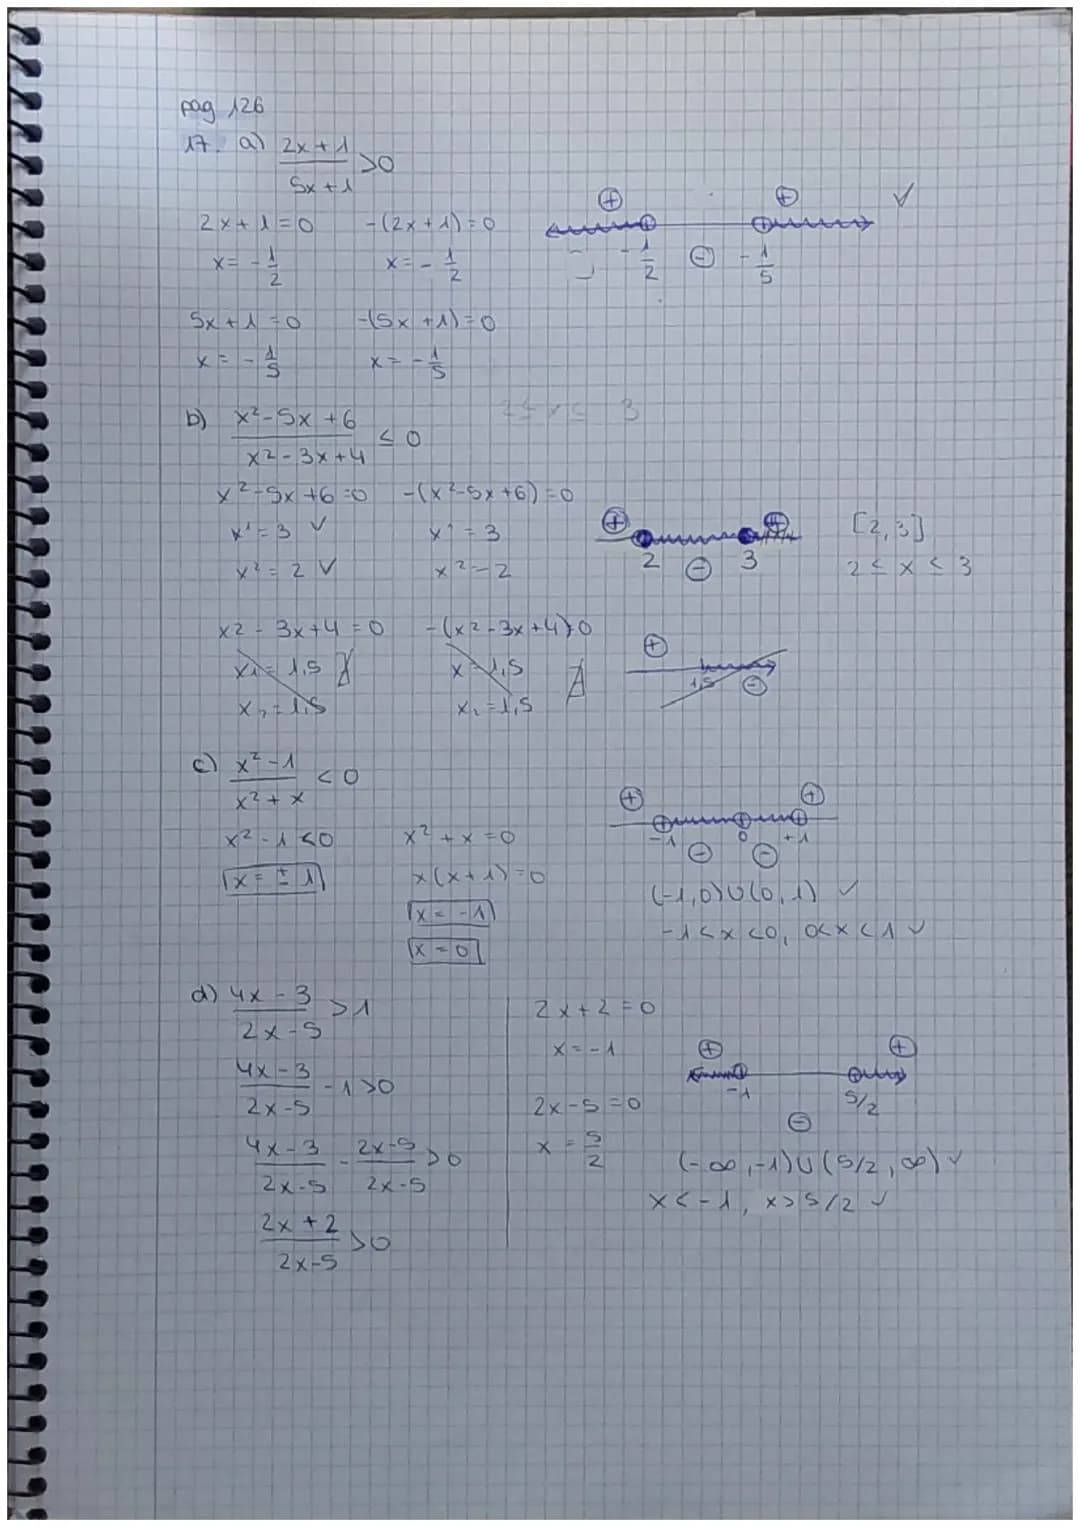 pag 126
17. a) 2x + 1 / 5x + 1 > 0
2x + 1 = 0   -(2x + 1) = 0
x = - 1/2   x = - 1/2
5x + 1 = 0   -(5x + 1) = 0
x = - 1/5   x = - 1/5
+ + ✓
- 1/2 - - 1/5
b) x² - 5x + 6 / x² - 3x + 4 ≤ 0
2 ≤ x ≤ 3
x² - 5x + 6 = 0   -(x² - 5x + 6) = 0
x¹ = 3 ✓   x¹ = 3
x² = 2 ✓   x² = 2
+ +
2 - 3
[2, 3]
2 ≤ x ≤ 3
x2 - 3x + 4 = 0   -(x2 - 3x + 4) = 0
x1 = 1,5 ∄   x = 1,5 ∄
x₂ = 1,5   x₂ = 1,5
+
1,5 -
c) x² - 1 / x² + x < 0
x² - 1 < 0   x² + x = 0
x = ± 1   x(x + 1) = 0
x = -1
x = 0
+ +
-1 0 +1
- -
(-1, 0) U (0, 1) ✓
-1 < x < 0, 0 < x < 1 ✓
d) 4x - 3 / 2x - 5 > 1
4x - 3 / 2x - 5 - 1 > 0
4x - 3 / 2x - 5 - 2x - 5 / 2x - 5 > 0
2x + 2 / 2x - 5 > 0
2x + 2 = 0
x = -1
2x - 5 = 0
x = 5/2
+ +
-1 5/2
-
(-∞, -1) U (5/2, ∞) ✓
x < -1, x > 5/2 ✓